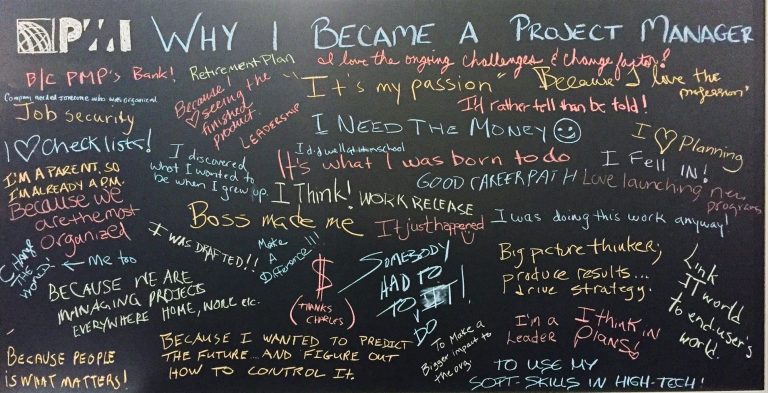 PMI WHY I BECAME A PROJECT MANAGER
I love the ongoing challenges & change factor!
B/C PMP's Bank!
Retirement Plan
"It's my passion"
Because I love the
profession!
Company needed someone who was organized
Job Security
Because I
♡ seeing the
finished
product.
LEADERSHIP
I'd rather tell than be told!
I NEED THE MONEY ☺
I ♡ Planning
I ♡ checklists!
I discovered
what I wanted to
be when I grew up.
I did well at
school
It's what I was born to do
I FELL IN!
I'M A PARENT, SO
I'M ALREADY A P.M.
GOOD CAREER PATH
Love launching new
programs
Because we
are the most
organized
I Think!
WORK RELEASE
Boss made me
It just happened
I was doing this work anyway!
CHANGE
THE
WORLD!
← me too
I WAS DRAFTED!!
Make
A
Difference!!!
$
(THANKS
CHARLES)
SOMEBODY
HAD TO
TO IT!
DO
Big picture thinker;
produce results...
drive strategy.
Link
IT world
to end-user's
world.
BECAUSE WE ARE
MANAGING PROJECTS
EVERYWHERE HOME, WORK etc.
I'm a
Leader
I think in
PLANS!
To Make a
Bigger impact to
the org.
BECAUSE PEOPLE
IS WHAT MATTERS!
BECAUSE I WANTED TO PREDICT
THE FUTURE... AND FIGURE OUT
HOW TO CONTROL IT.
TO USE MY
SOFT-SKILLS IN HIGH-TECH!